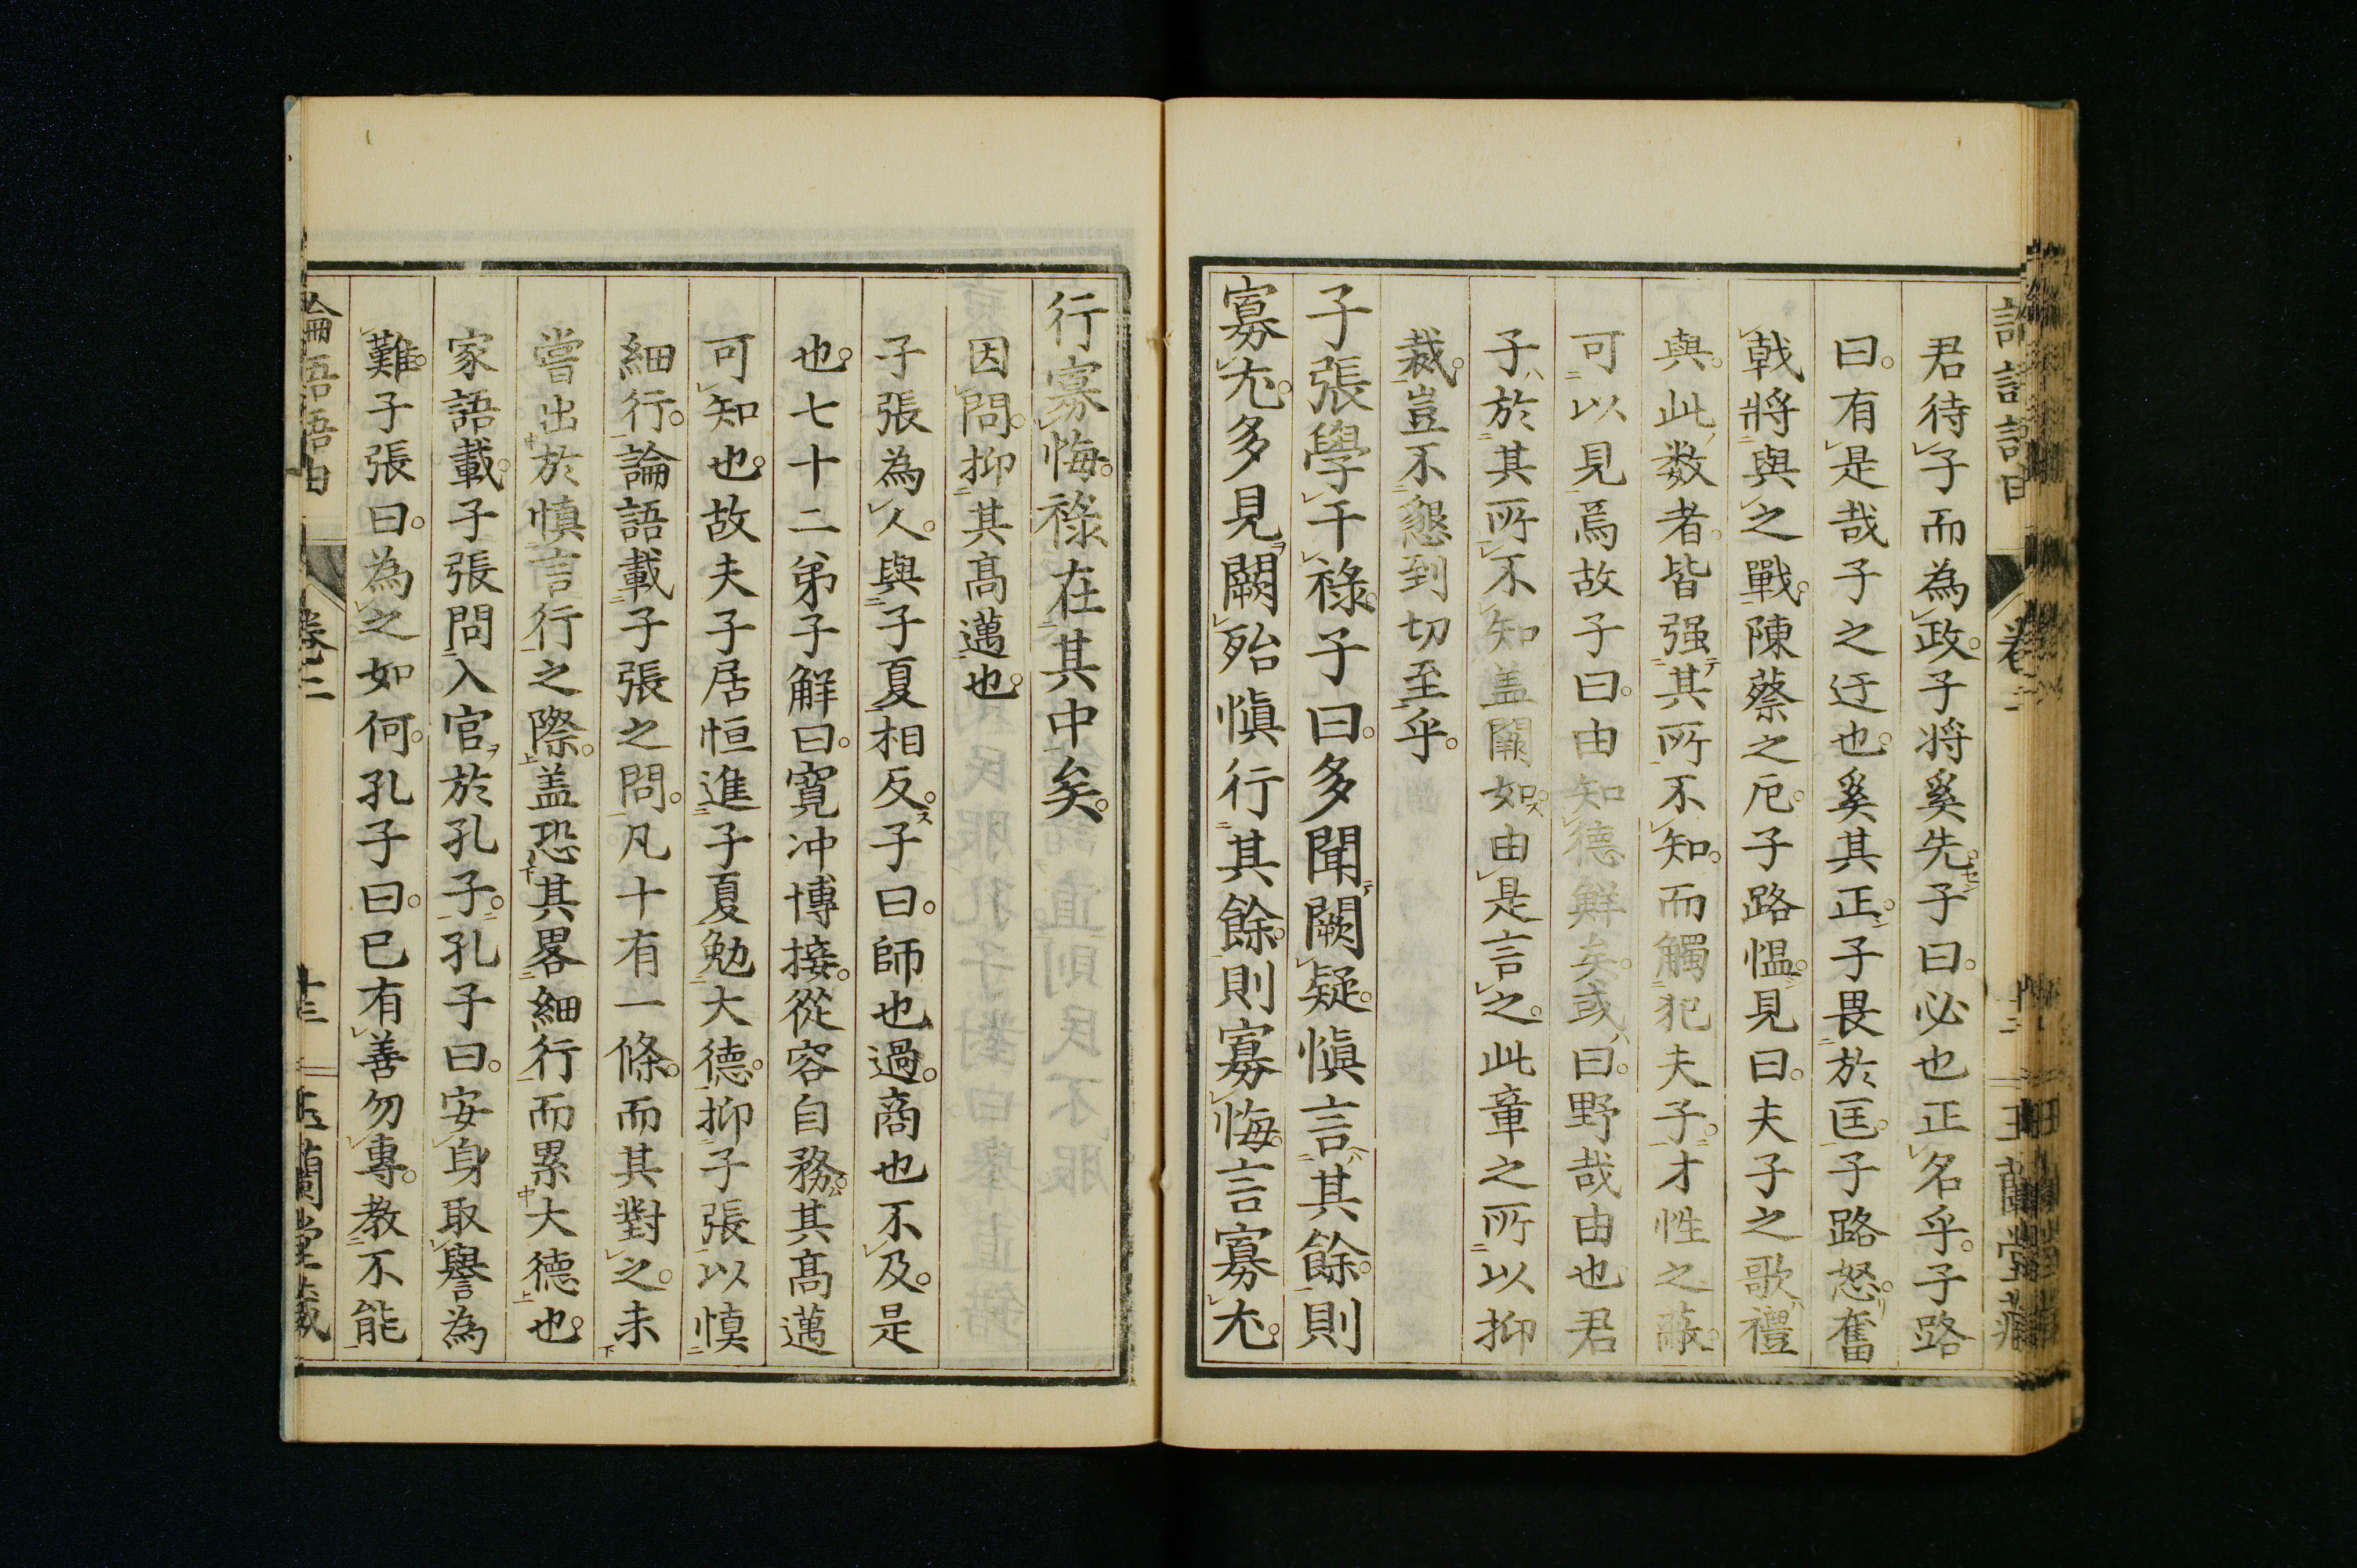 君待子而為政。子将奚先。子曰。必也正名乎。子路
曰。有是哉子之迂也。奚其正。子畏於匡。子路怒。奮
戟將與之戰。陳蔡之厄。子路慍。見曰。夫子之歌禮
與。此数者。皆强其所不知。而觸犯夫子。才性之蔽。
可以見焉故子曰。由知德鮮矣。或曰。野哉由也君
子於其所不知盖闕如。由是言之。此章之所以抑
裁。豈不懇到切至乎。
子張學干祿。子曰。多聞闕疑。慎言其餘。則
寡尤。多見闕殆慎行其餘。則寡悔。言寡尤。
行寡悔。祿在其中矣。
因問。抑其髙邁也。
子張為人。與子夏相反。子曰。師也過。商也不及。是
也。七十二弟子解曰。寛冲博接。從容自務。其髙邁
可知也。故夫子居恒進子夏勉大德。抑子張以慎
細行。論語載子張之問。凡十有一條。而其對之。未
嘗出於慎言行之際。盖恐其畧細行而累大德也。
家語載。子張問入官於孔子。孔子曰。安身取譽為
難。子張曰。為之如何。孔子曰。已有善勿專。教不能
論語語由
卷二
十三
玉蘭堂藏